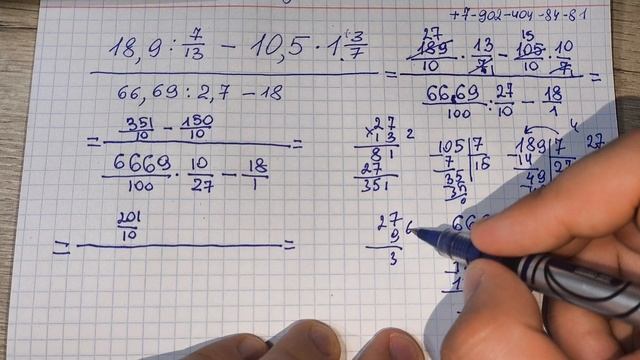 +7-902-404-84-81
18,9 : 7/13 − 10,5 · 1 3/7
66,69 : 2,7 − 18
=
27 15
189/10 · 13/7 − 105/10 · 10/7
66,69/100 : 27/10 − 18/1
=
= 351/10 − 150/10
6669/100 · 10/27 − 18/1
=
27
× 13
81
27
351
2
105 | 7
7 | 15
35
35
0
189 | 7
14 | 27
49
4
27
= 201/10
=
27
9
3
6